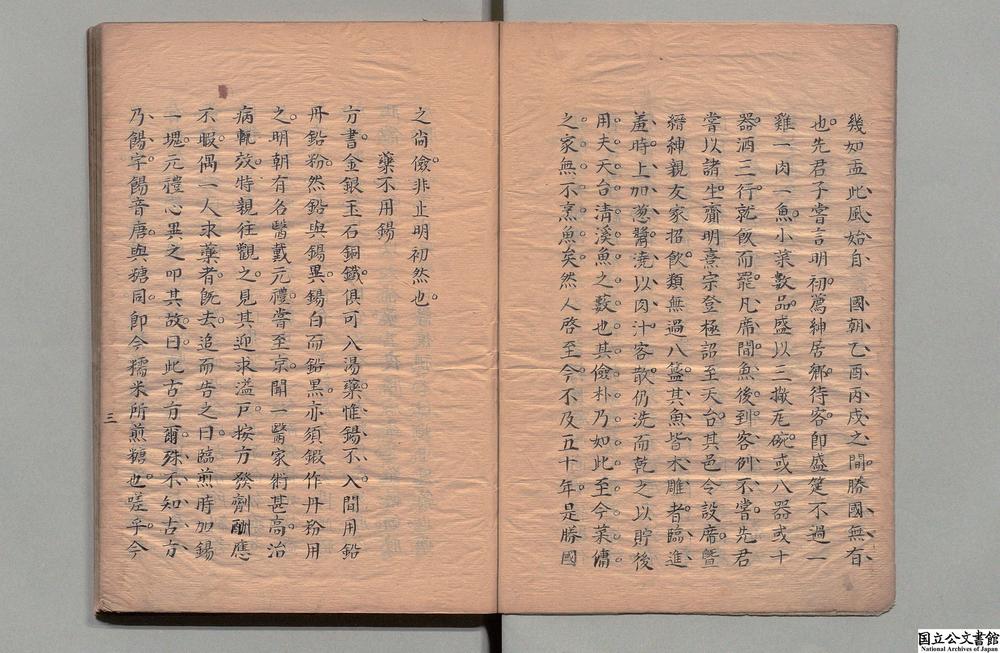 幾如盂此風始自　國朝乙酉丙戌之間勝國無有
也先君子嘗言明初薦紳居鄉待客即盛筵不過一
雞一肉一魚小菜數品盛以三撤瓦碗或八器或十
器酒三行就飯而罷凡席間魚後到客例不嘗先君
嘗以諸生齎明熹宗登極詔至天台其邑令設席曁
縉紳親友家招飲類無過八簋其魚皆木雕者臨進
羞時上加葱醬澆以肉汁客散仍洗而乾之以貯後
用夫天台清溪魚之藪也其儉朴乃如此至今菜傭
之家無不烹魚矣然人啓至今不及五十年是勝國
之尙儉非止明初然也
藥不用錫
方書金銀玉石銅鐵俱可入湯藥惟錫不入間用鉛
丹鉛粉然鉛與錫異錫白而鉛黒亦須鍜作丹粉用
之明朝有名醫戴元禮嘗至京聞一醫家術甚高治
病輒效特親往觀之見其迎求溢戶按方發劑酬應
不暇偶一人求藥者旣去追而告之曰臨煎時加錫
一塊元禮心異之叩其故曰此古方爾殊不知古方
乃餳字餳音唐與糖同即今糯米所煎糖也嗟乎今
三
国立公文書館
National Archives of Japan